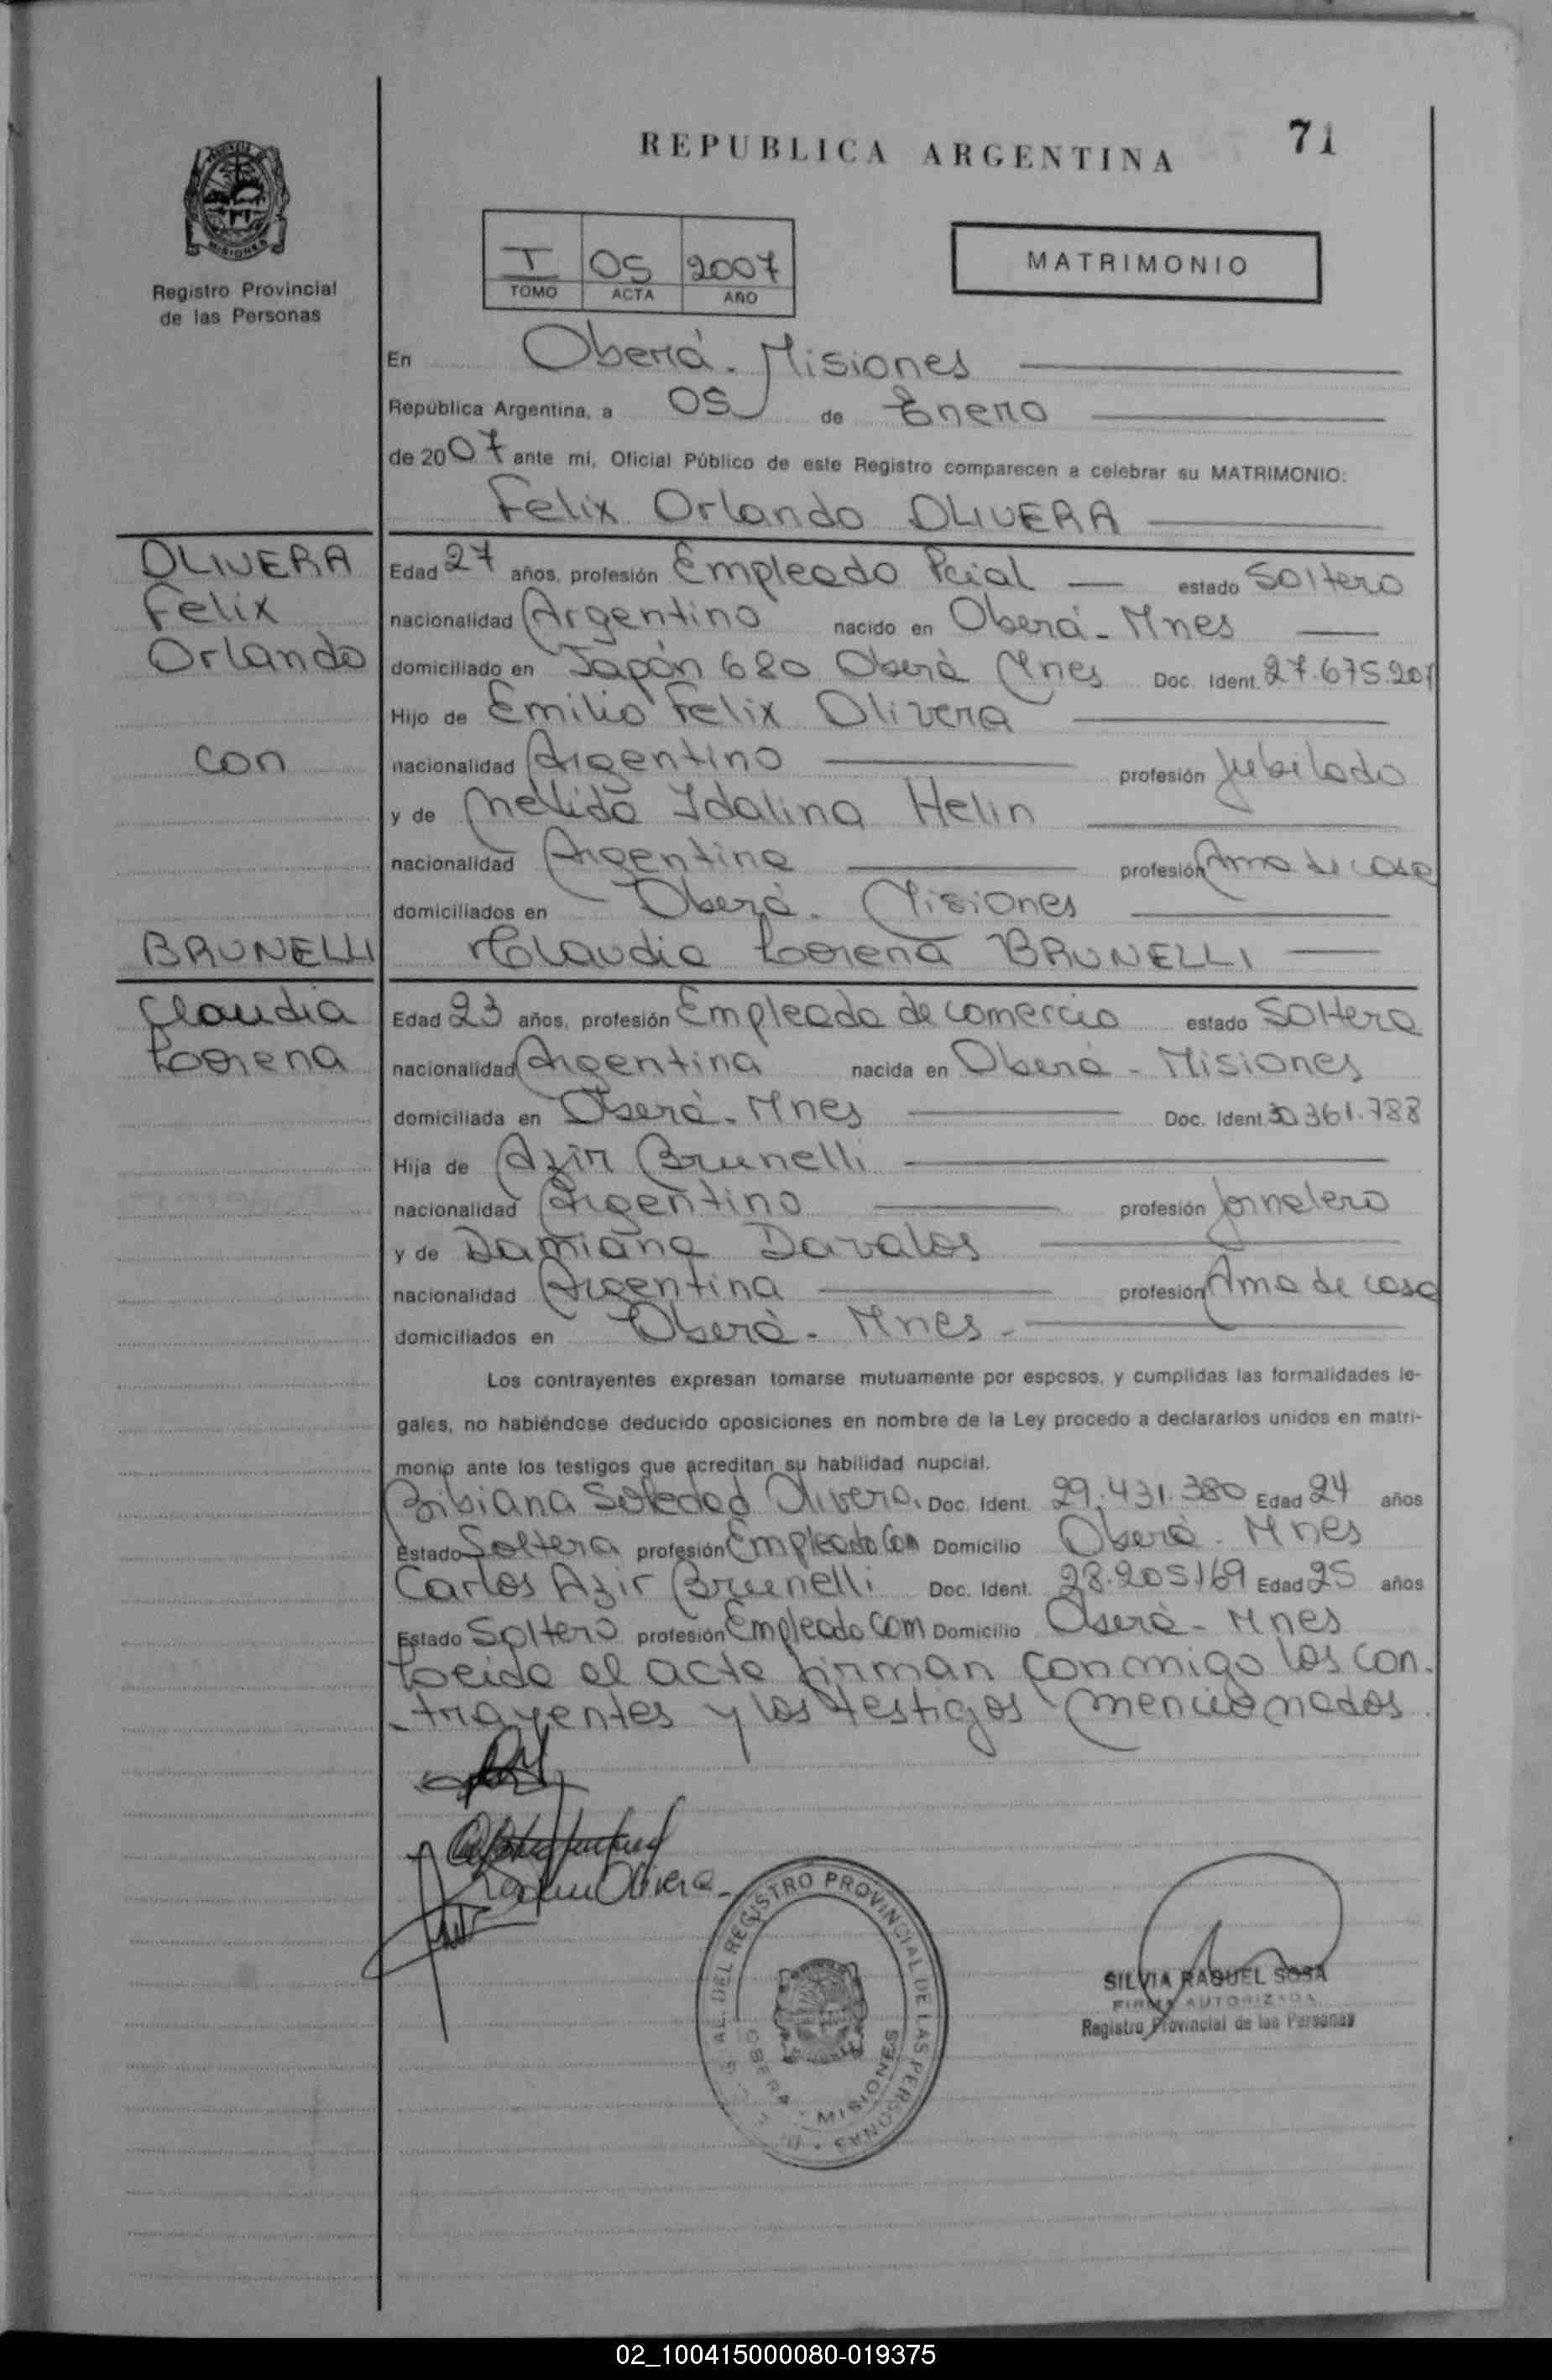 REPUBLICA ARGENTINA
71
MISIONES
Registro Provincial
de las Personas
I 05 2007
TOMO ACTA AÑO
MATRIMONIO
En Oberá - Misiones
República Argentina, a 05 de Enero
de 2007 ante mi, Oficial Público de este Registro comparecen a celebrar su MATRIMONIO:
Felix Orlando OLIVERA
OLIVERA
Felix
Orlando
con
BRUNELLI
Claudia
Lorena
Edad 27 años, profesión Empleado Pcial estado Soltero
nacionalidad Argentino nacido en Oberá - Mnes
domiciliado en Japón 680 Oberá Mnes Doc. Ident. 27.675.207
Hijo de Emilio Felix Olivera
nacionalidad Argentino profesión Jubilado
y de Nelida Idalina Helin
nacionalidad Argentina profesión Ama de casa
domiciliados en Oberá - Misiones
Claudia Lorena BRUNELLI
Edad 23 años, profesión Empleada de comercio estado Soltera
nacionalidad Argentina nacida en Oberá - Misiones
domiciliada en Oberá - Mnes Doc. Ident. 30.361.788
Hija de Azir Brunelli
nacionalidad Argentino profesión Jornalero
y de Damiana Davalos
nacionalidad Argentina profesión Ama de casa
domiciliados en Oberá - Mnes -
Los contrayentes expresan tomarse mutuamente por esposos, y cumplidas las formalidades le-
gales, no habiéndose deducido oposiciones en nombre de la Ley procedo a declararlos unidos en matri-
monio ante los testigos que acreditan su habilidad nupcial.
Bibiana Soledad Olivera. Doc. Ident. 29.431.380 Edad 24 años
Estado Soltera profesión Empleada Com Domicilio Oberá - Mnes
Carlos Azir Brunelli Doc. Ident. 28.205.169 Edad 25 años
Estado Soltero profesión Empleado Com Domicilio Oberá - Mnes
Leida el acta firman conmigo los con-
-trayentes y los testigos mencionados.
Olivera
DEL REGISTRO PROVINCIAL DE LAS PERSONAS
OBERA - MISIONES
SILVIA RAQUEL SOSA
FIRMA AUTORIZADA
Registro Provincial de las Personas
02_100415000080-019375